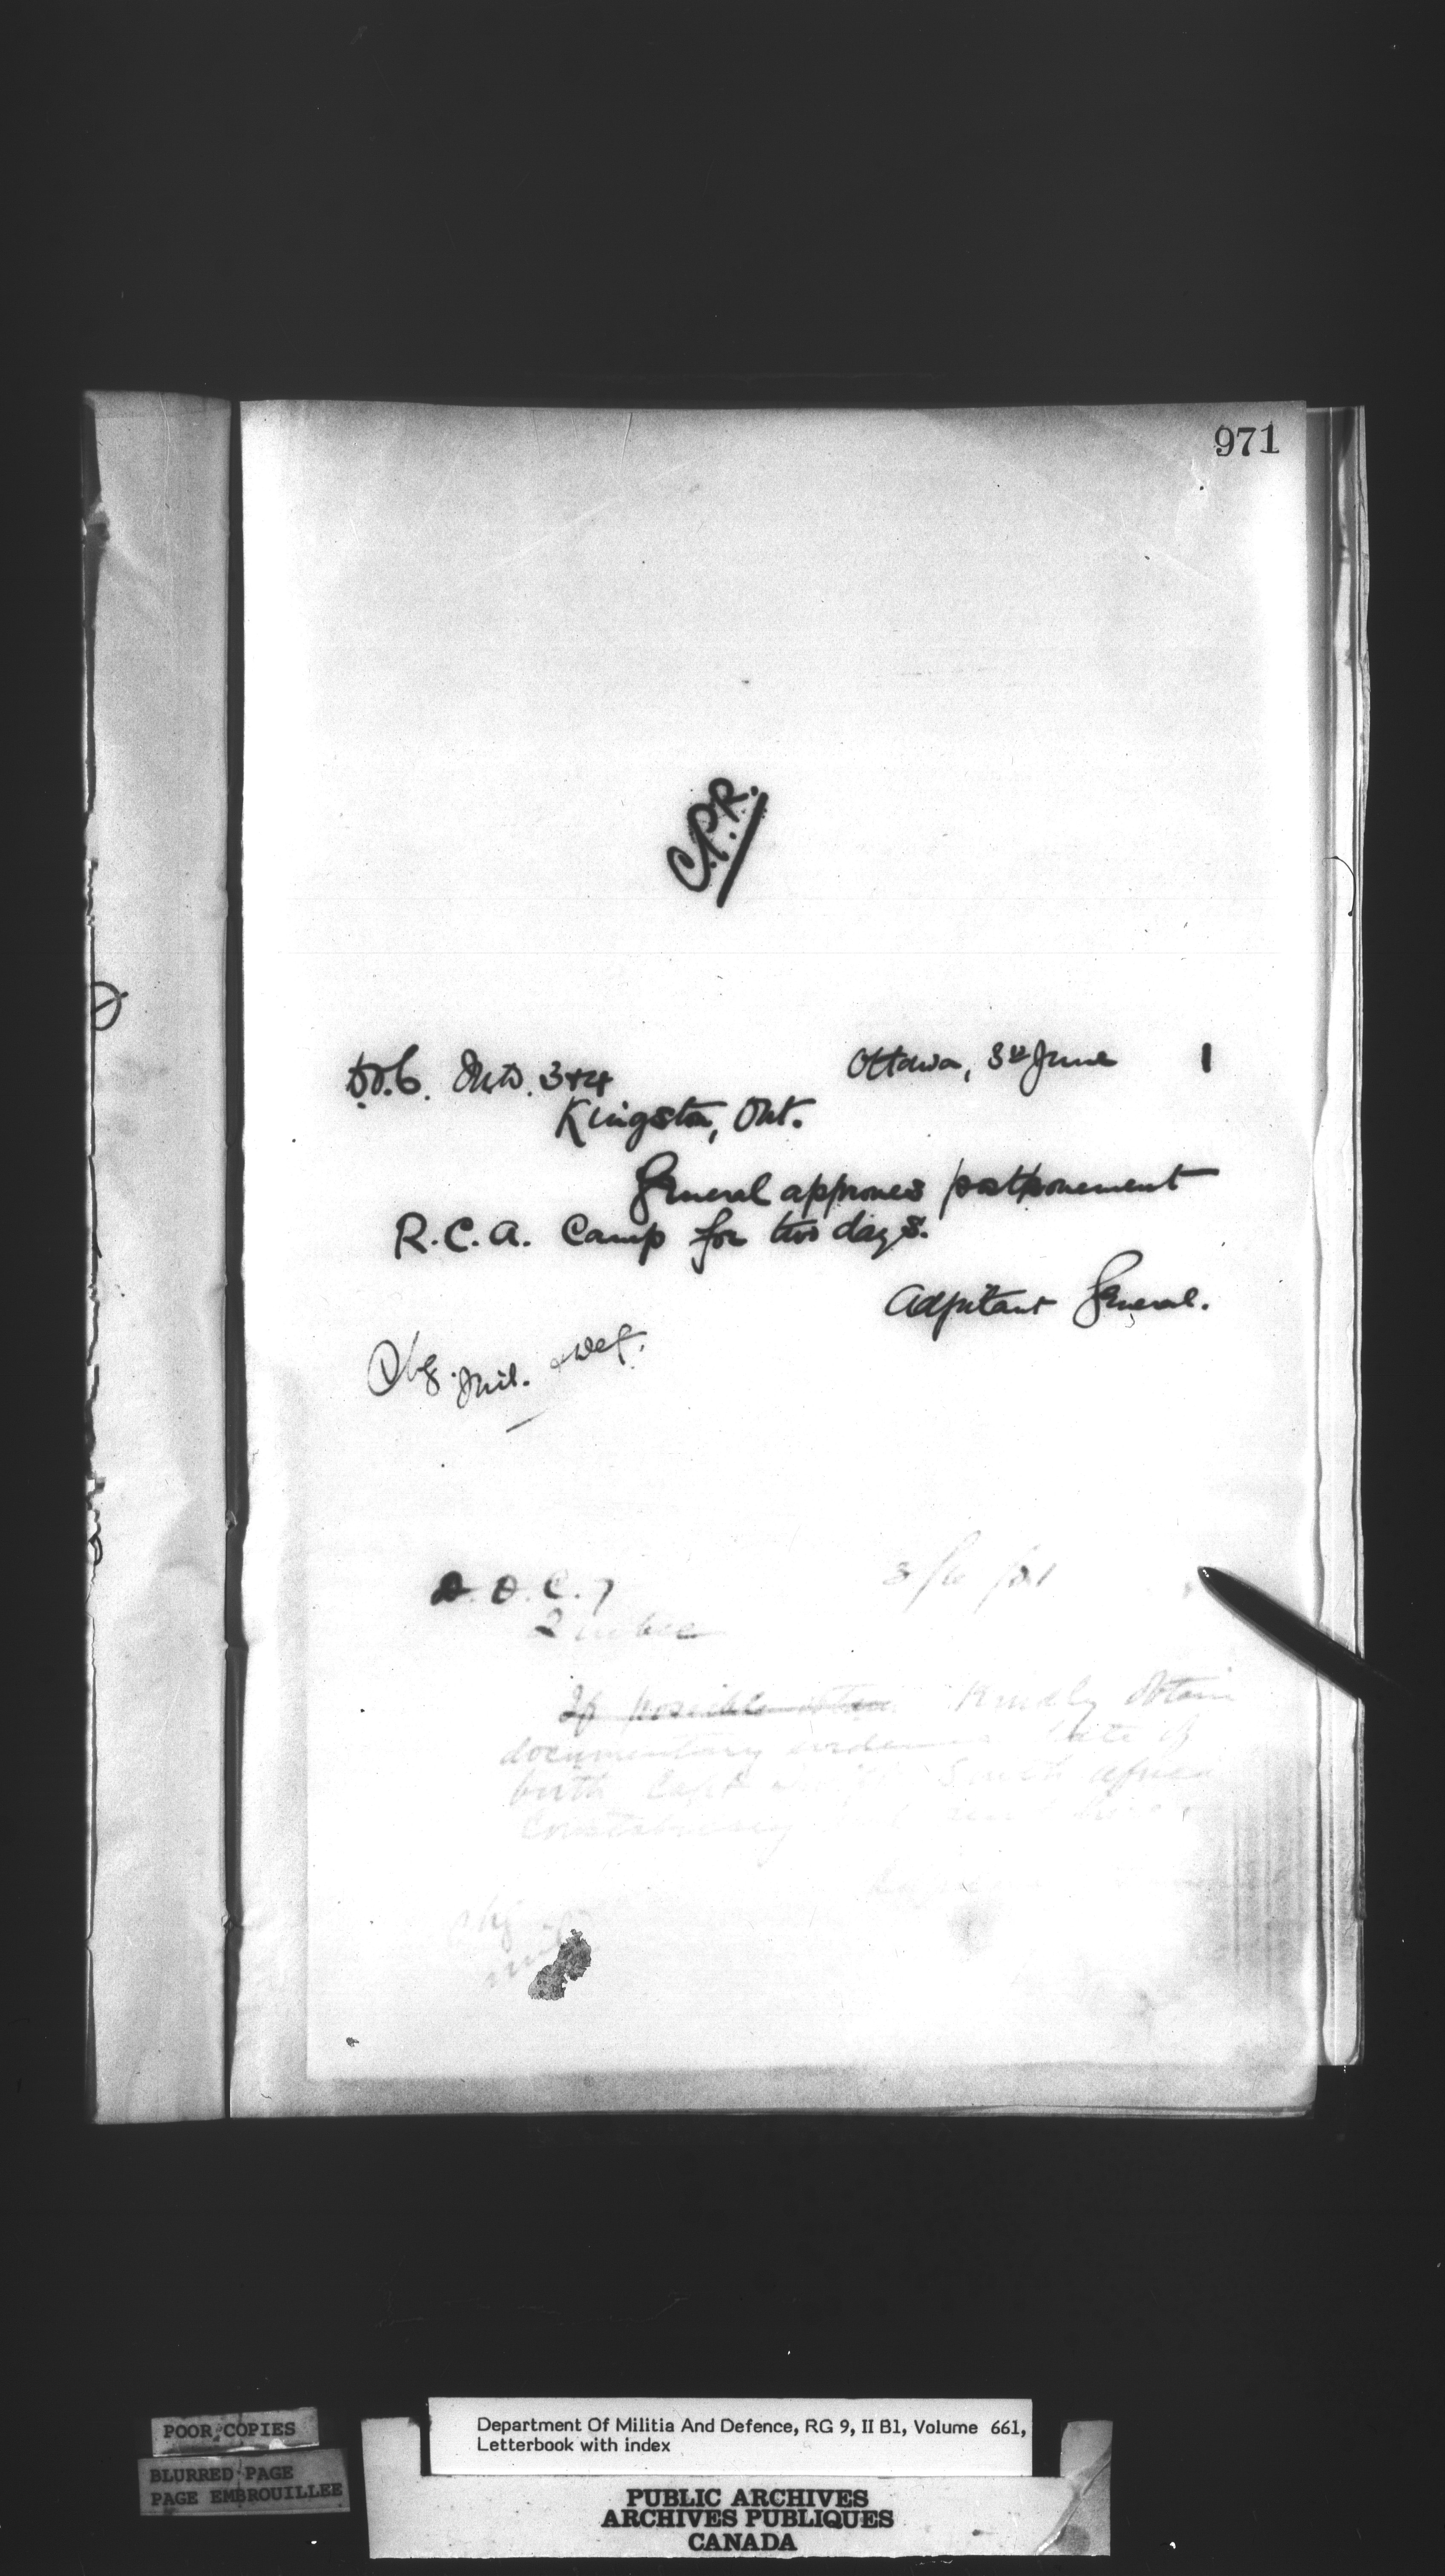 971
C.P.R.
D.O.C. Dists. 3 & 4 Ottawa, 3rd June 1
Kingston, Ont.
General approves postponement
R.C.A. Camp for two days.
Adjutant General.
Chg. Mil. & Def.
D.O.C. 7
Quebec
If possible Kindly obtain
documentary evidence date of
birth Capt South African
Constabulary
Chg
Mil
POOR COPIES
BLURRED PAGE
PAGE EMBROUILLEE
Department Of Militia And Defence, RG 9, II B1, Volume 661,
Letterbook with index
PUBLIC ARCHIVES
ARCHIVES PUBLIQUES
CANADA